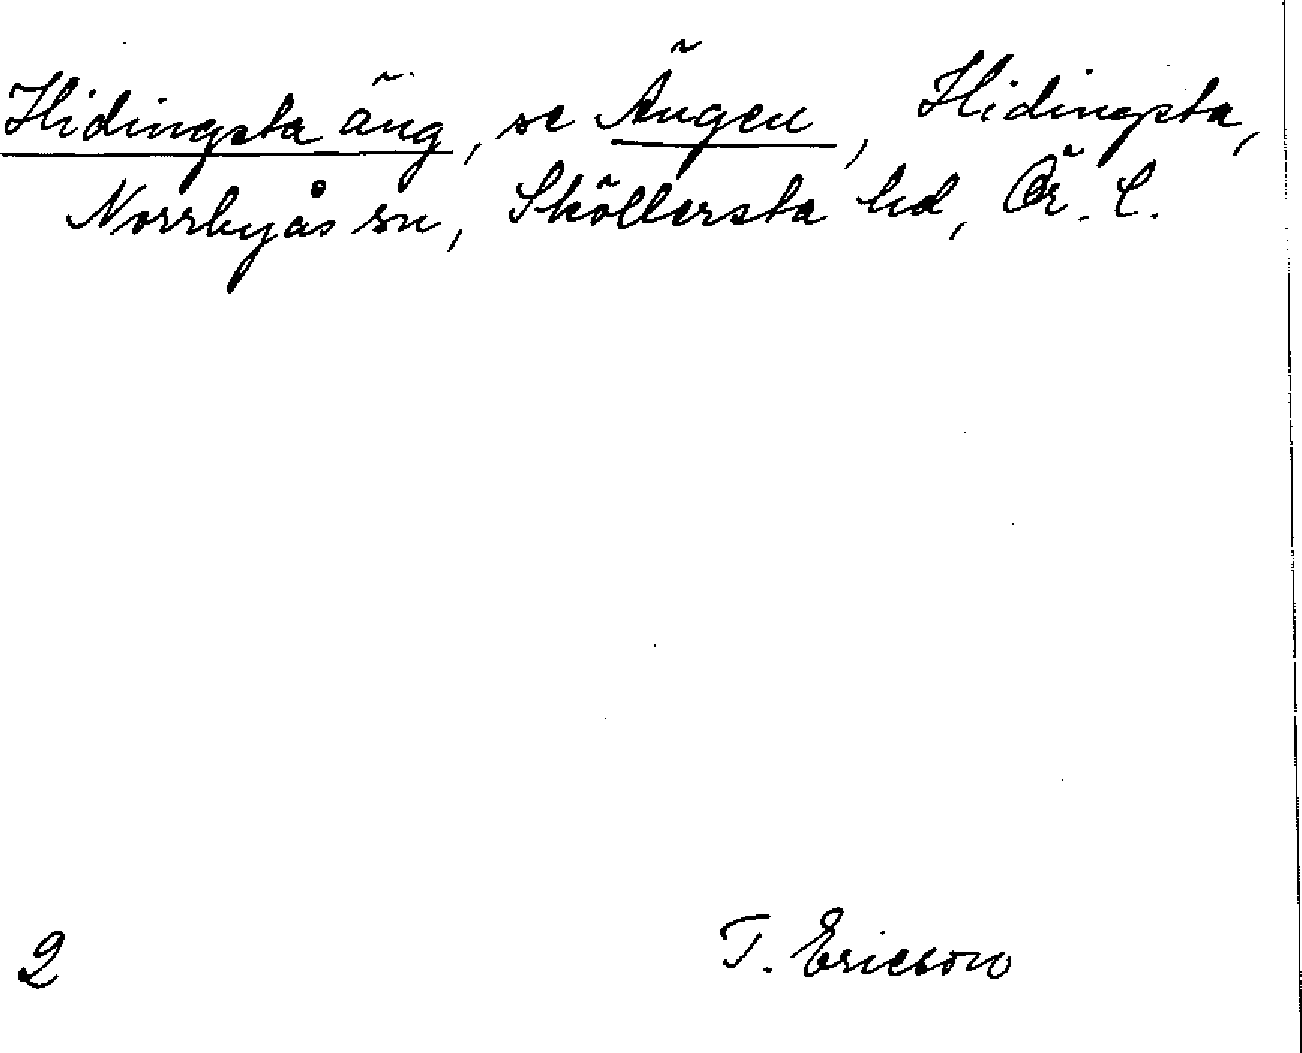 Hidingsta äng, se Ängen, Hidingsta,
Norrbyås sn, Sköllersta hd, Ör. l.
2 T. Ericson